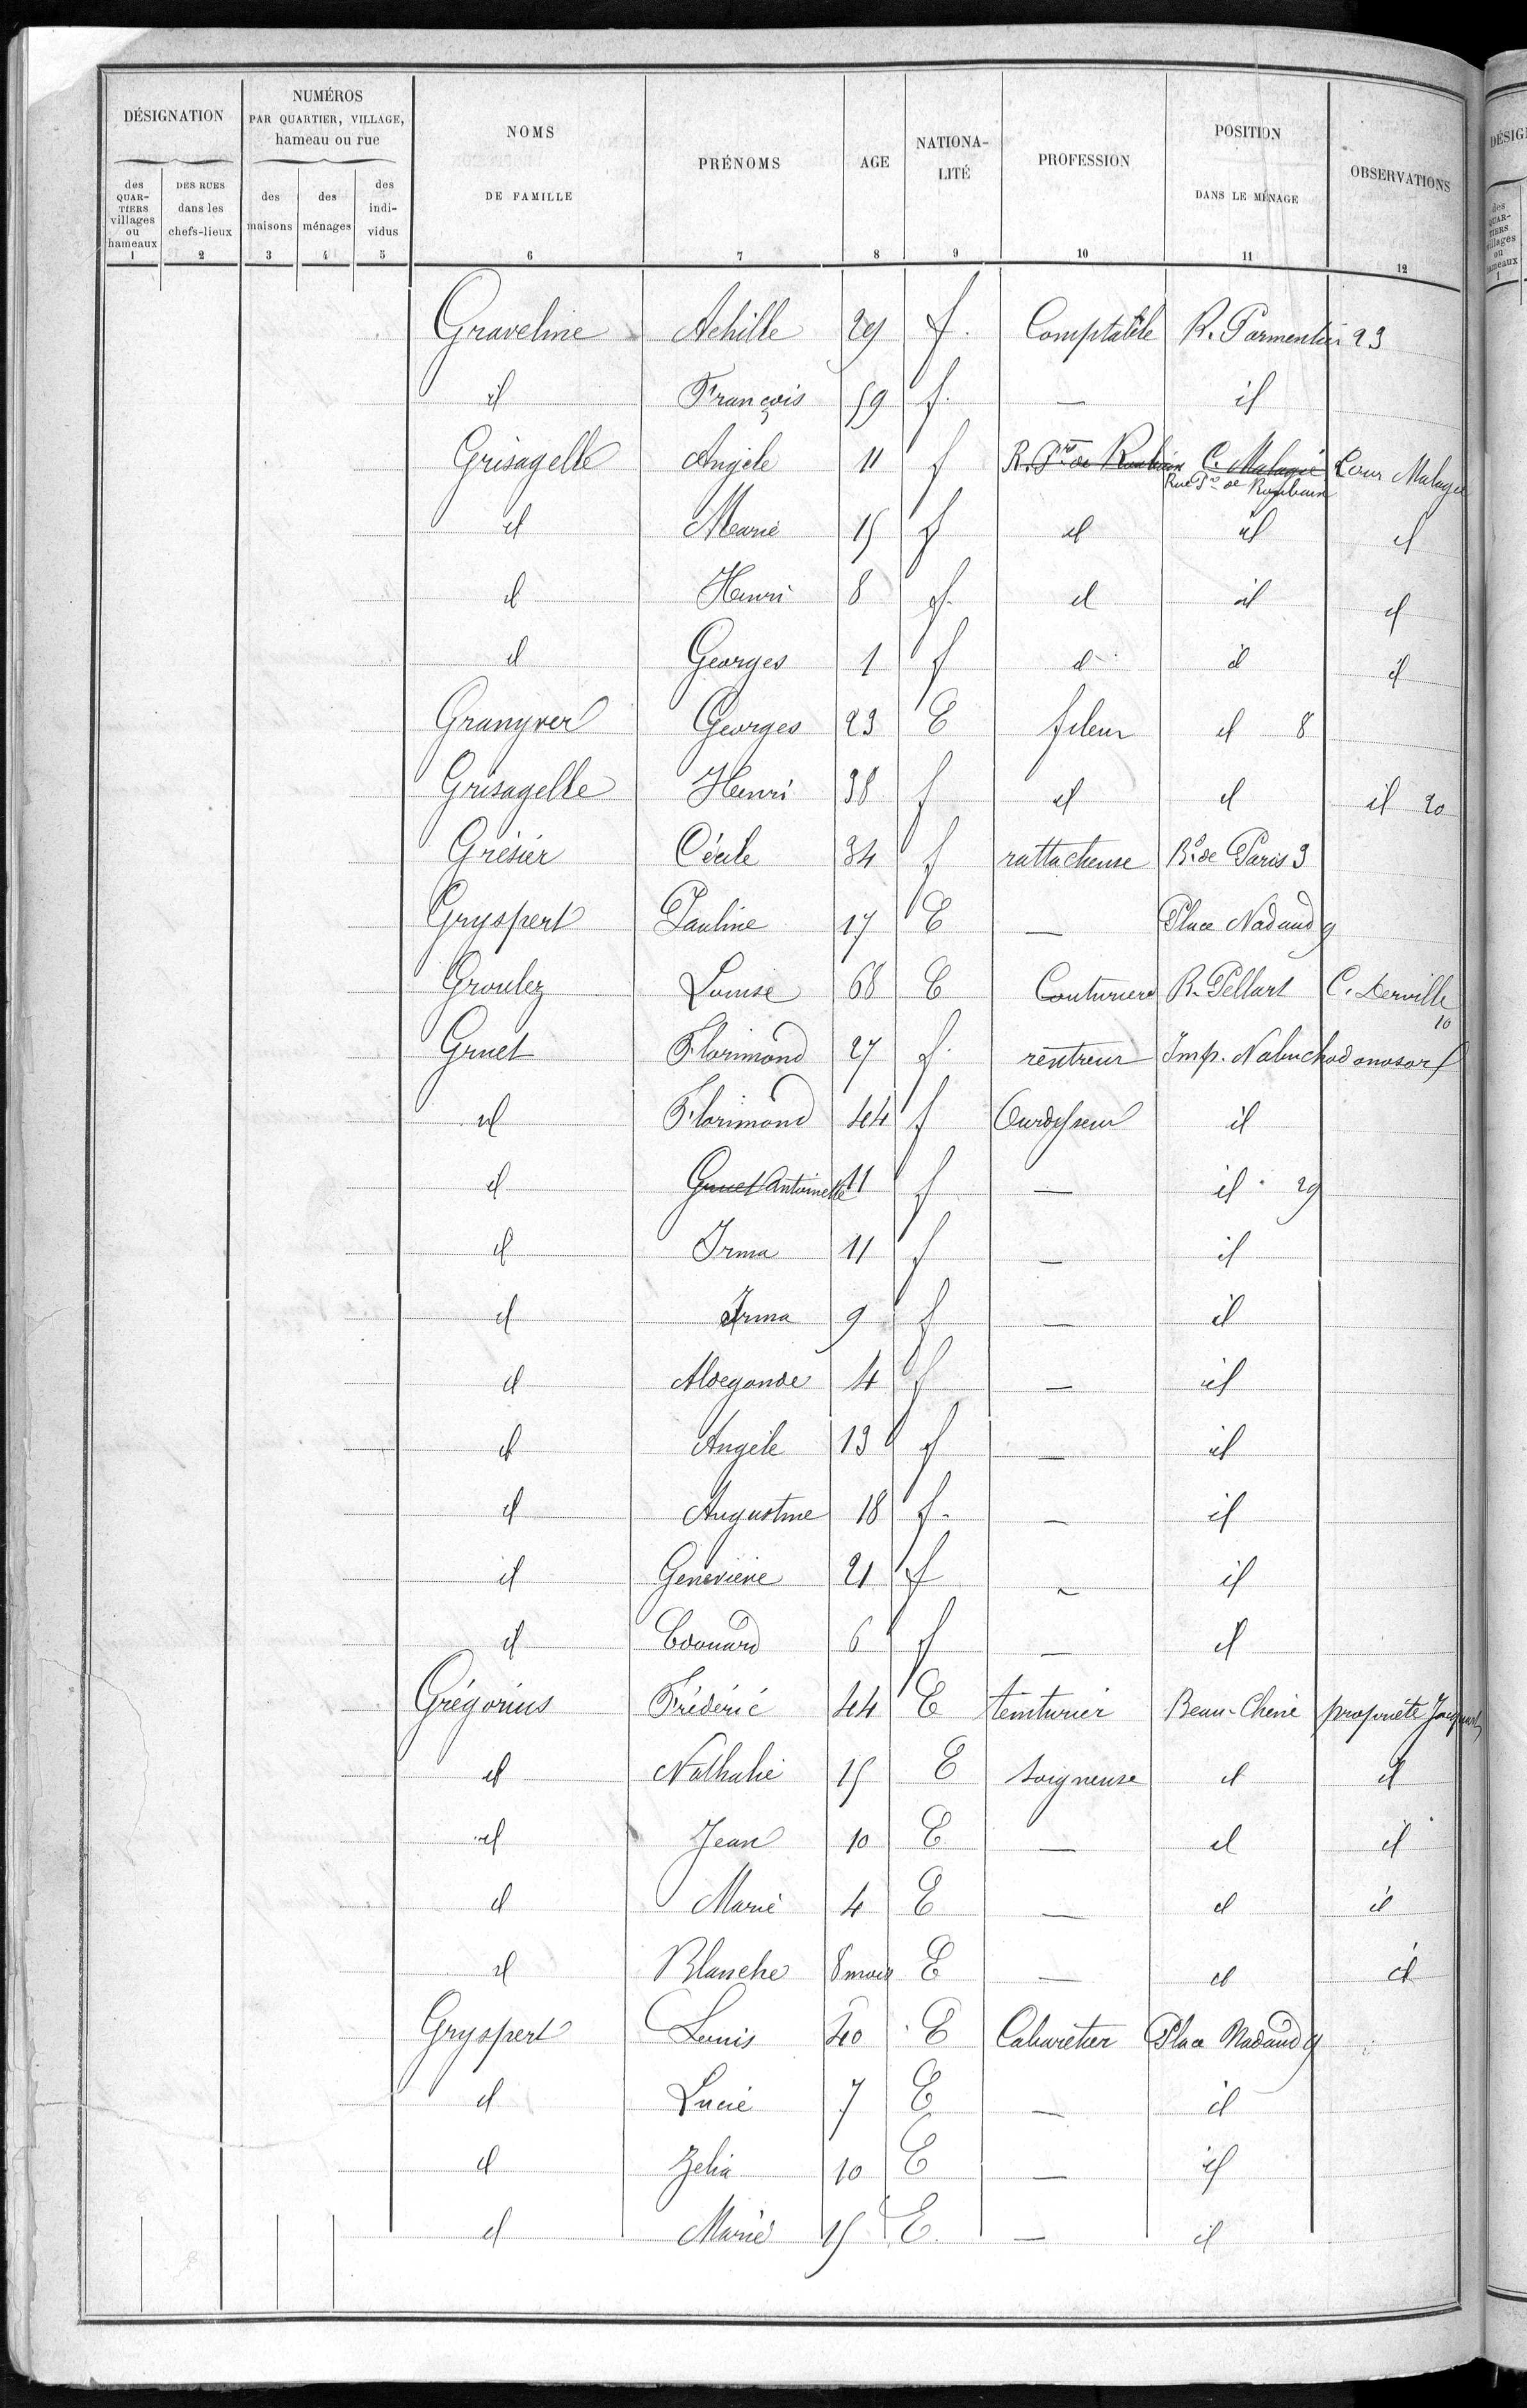 DÉSIGNATION
NUMÉROS PAR QUARTIER, VILLAGE, hameau ou rue
NOMS DE FAMILLE
PRÉNOMS
AGE
NATIONALITÉ
PROFESSION
POSITION DANS LE MÉNAGE
OBSERVATIONS
des QUARTIERS villages ou hameaux
DES RUES dans les chefs-lieux
des maisons
des ménages
des individus
1 2 3 4 5 6 7 8 9 10 11 12
Graveline Achille 29 f. Comptable R. Parmentier 23
id François 59 f. — id
Grisagelle Angèle 11 f R. Pre de Roubaix C. Malagié Cour Malagié
Rue Pre de Roubaix
id Marie 15 f id id id
id Henri 8 f. id id id
id Georges 1 f id id id
Grunyver Georges 23 E fileur id 8
Grisagelle Henri 38 f id id id 20
Grésier Cécile 34 f rattacheuse Bd de Paris 3
Gryspert Pauline 17 E — Place Nadaud 9
Groulez Louise 68 E Couturière R. Pellart C. Derville 10
Gruet Florimond 27 f. rentreur Imp. Nabuchodonosor
id Florimond 44 f Ourdisseur id
id Gruet Antoinette 11 f — id 29
id Irma 11 f — id
id Irma 9 f — id
id Aldegonde 4 f — id
id Angèle 13 f — id
id Augustine 18 f. — id
id Geneviève 21 f — id
id Edouard 6 f — id
Grégorius Frédéric 44 E teinturier Beau-Chêne propriété Jacquart
id Nathalie 15 E soigneuse id id
id Jean 10 E — id id
id Marie 4 E — id id
id Blanche 8 mois E — id id
Gryspert Louis 40 E Cabaretier Place Nadaud 9
id Lucie 7 E — id
id Zelia 10 E — id
id Marie 15 E. — id